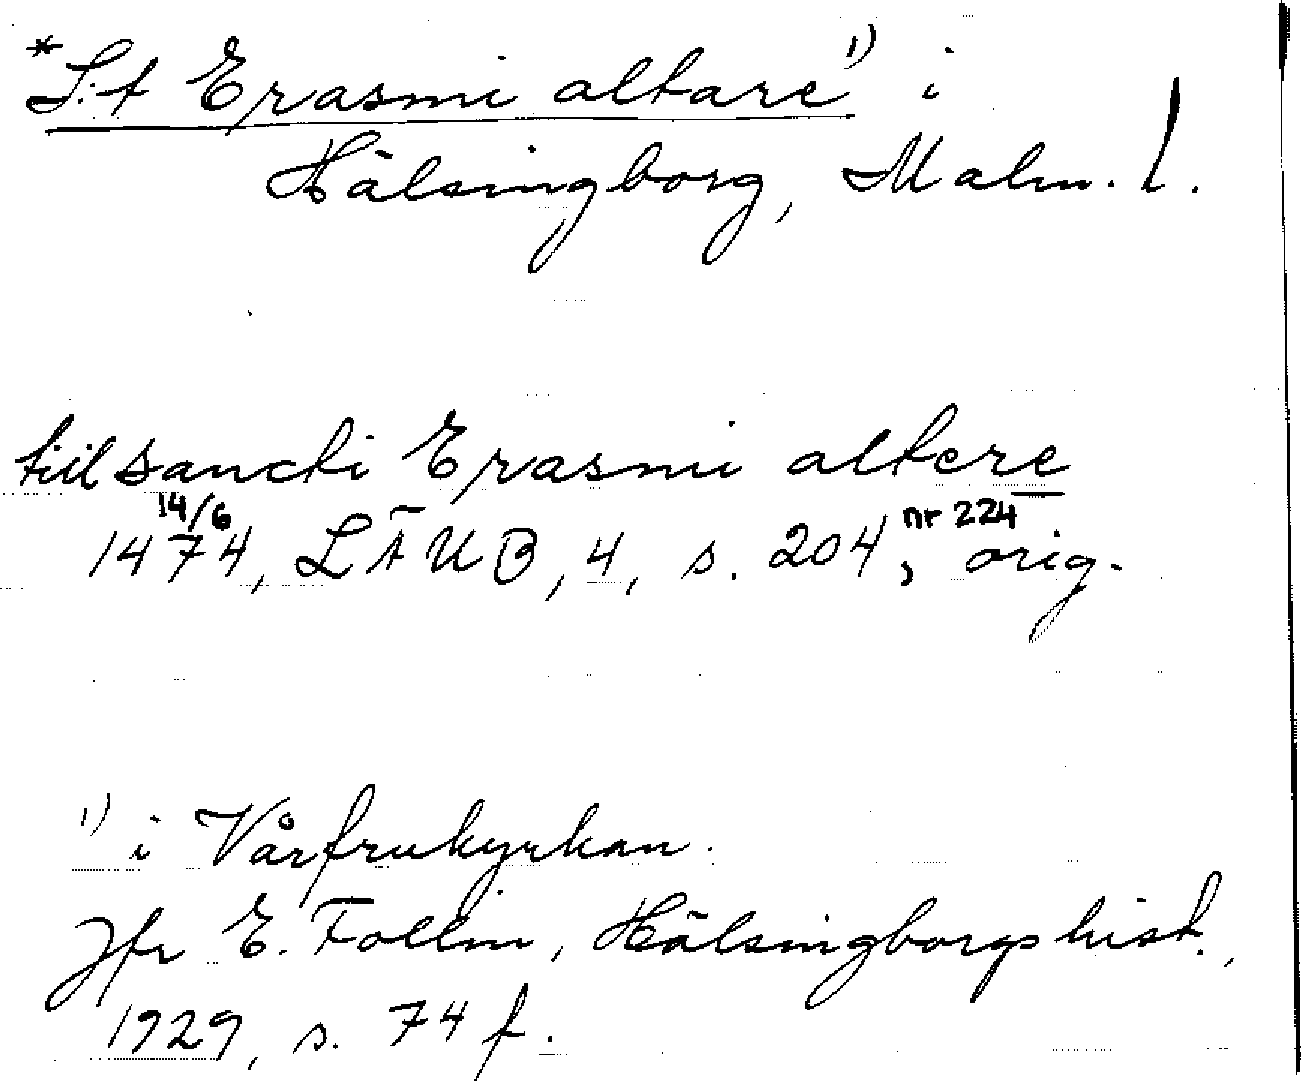 *S:t Erasmi altare 1) i
Hälsingborg, Malm. l.
tiil sancti Erasmi altere
14/6 nr 224
1474, LÄUB, 4, s. 204, orig.
1) i Vårfrukyrkan.
Jfr E. Follin, Hälsingborgs hist.,
1929, s. 74 f.